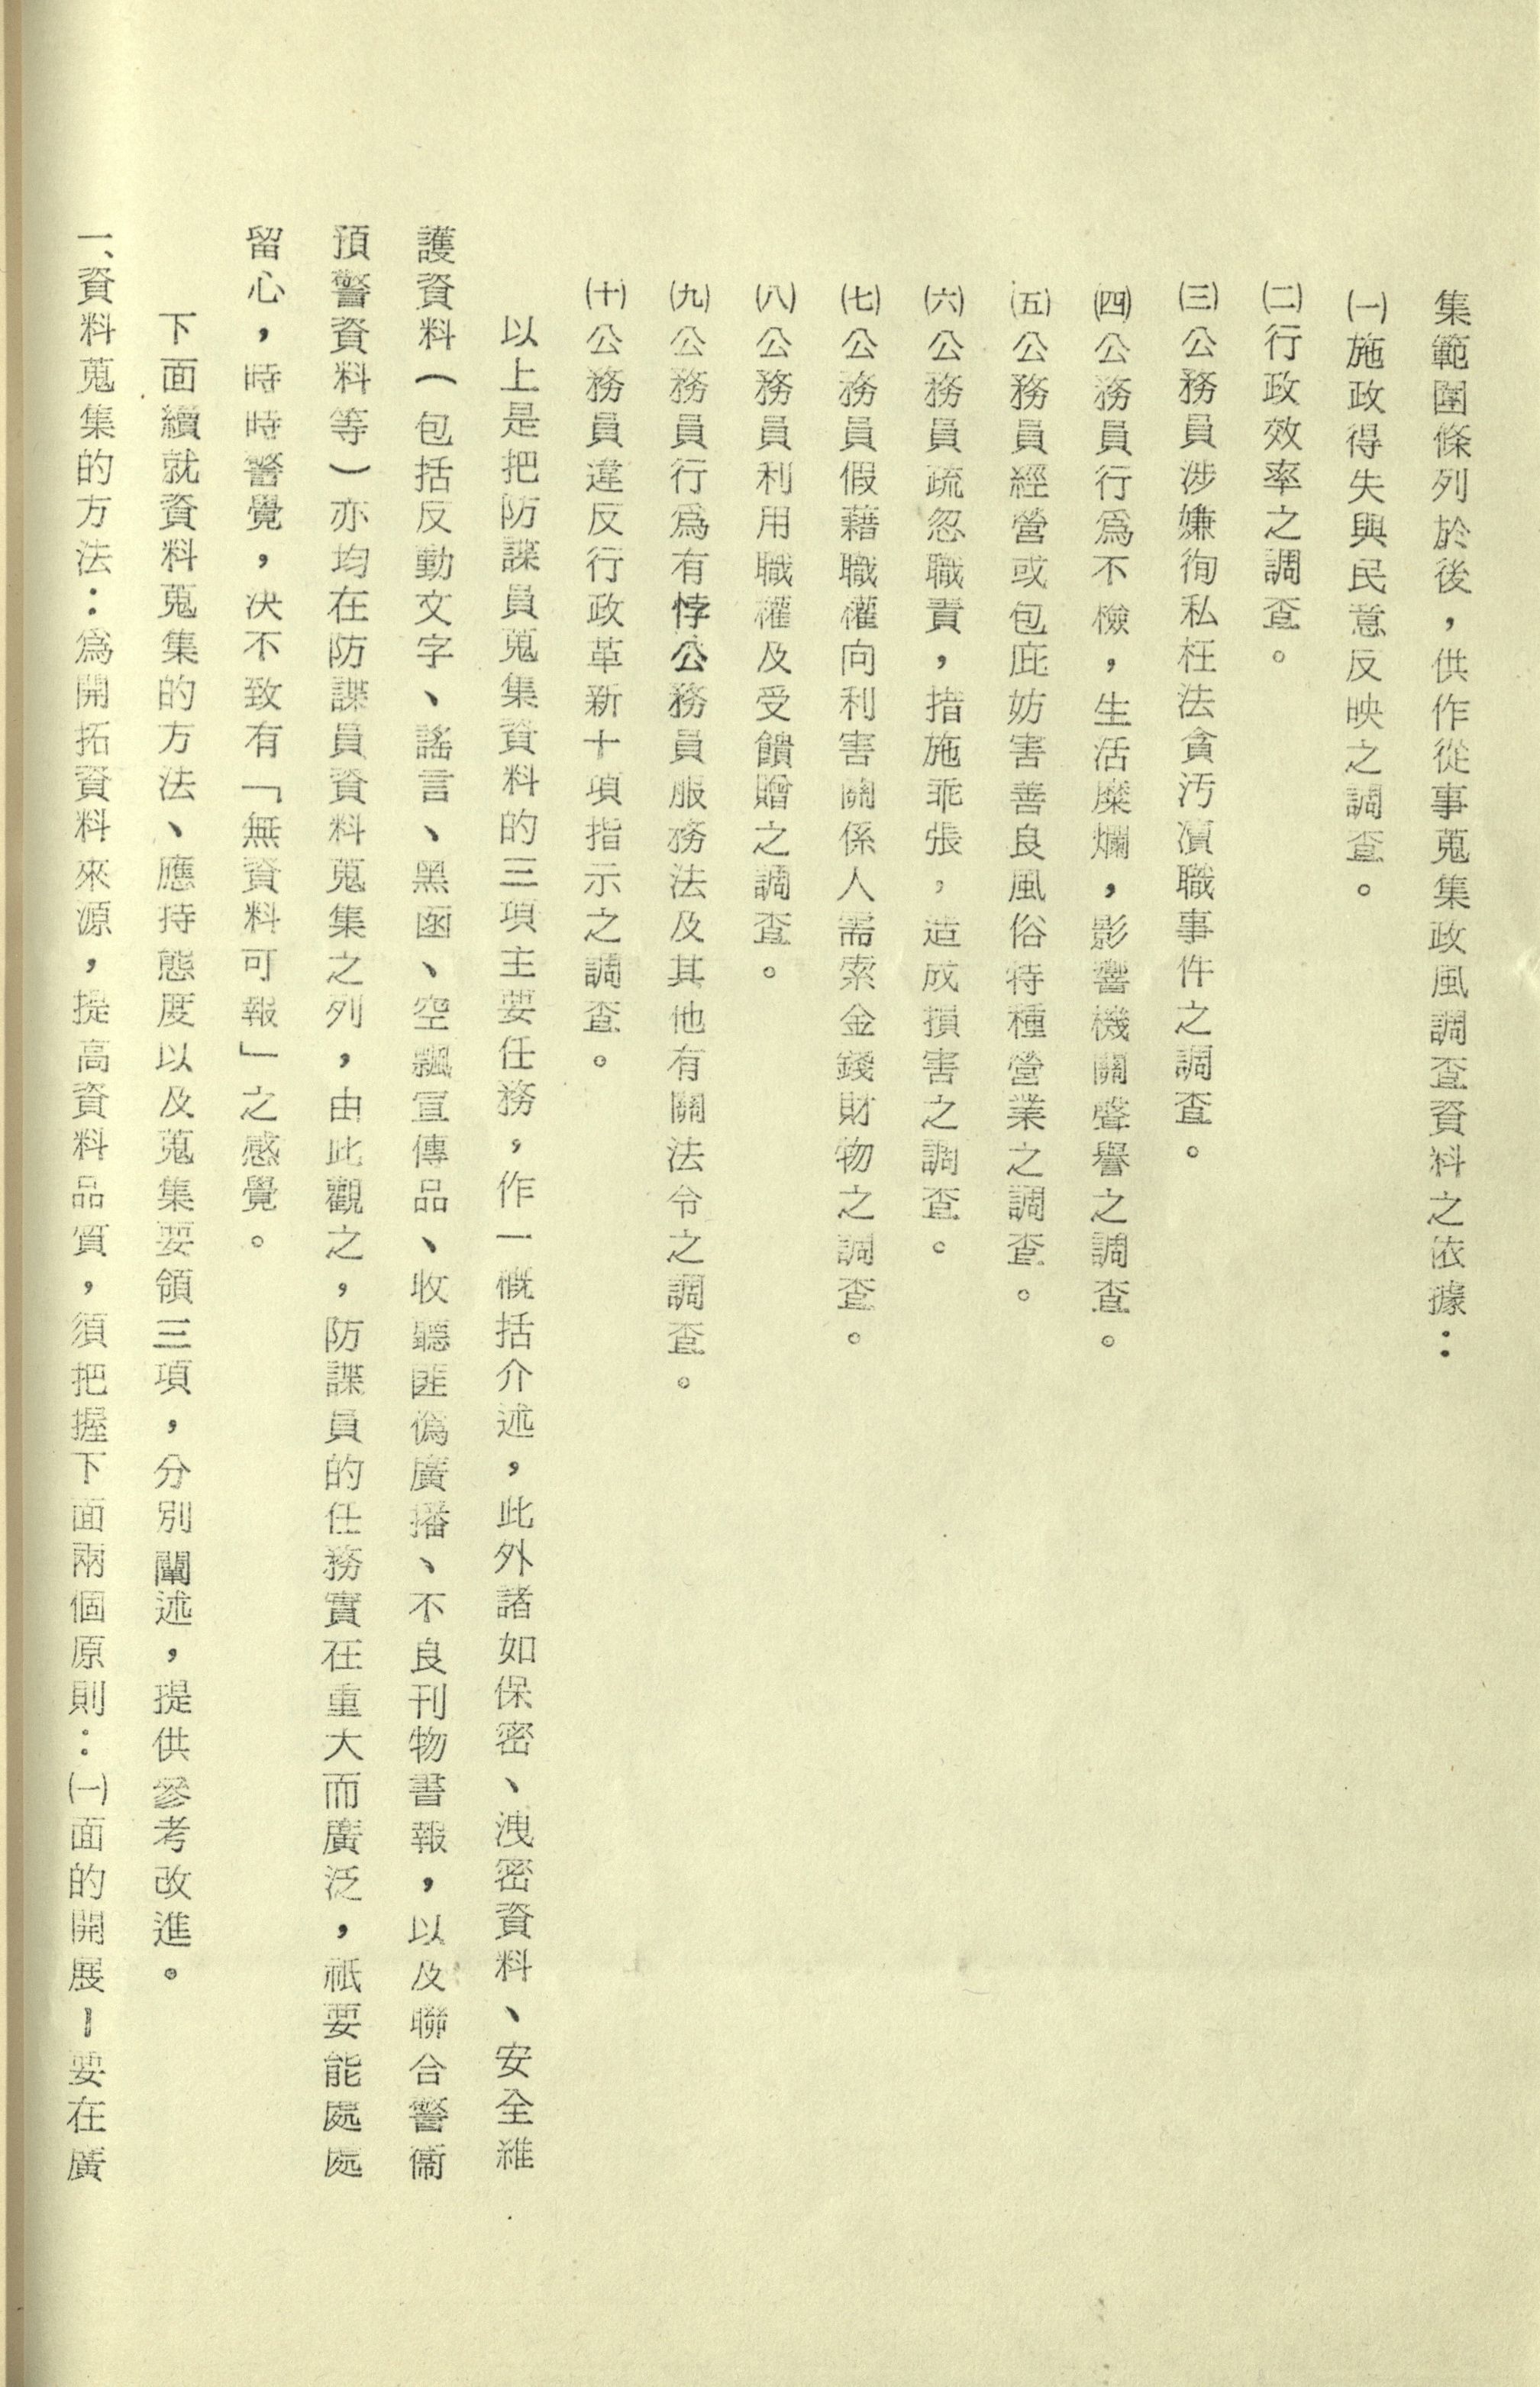 集範圍條列於後，供作從事蒐集政風調查資料之依據：
㈠施政得失與民意反映之調查。
㈡行政效率之調查。
㈢公務員涉嫌徇私枉法貪污瀆職事件之調查。
㈣公務員行爲不檢，生活糜爛，影響機關聲譽之調查。
㈤公務員經營或包庇妨害善良風俗特種營業之調查。
㈥公務員疏忽職責，措施乖張，造成損害之調查。
㈦公務員假藉職權向利害關係人需索金錢財物之調查。
㈧公務員利用職權及受饋贈之調查。
㈨公務員行爲有悖公務員服務法及其他有關法令之調查。
㈩公務員違反行政革新十項指示之調查。
以上是把防諜員蒐集資料的三項主要任務，作一概括介述，此外諸如保密、洩密資料、安全維
護資料（包括反動文字、謠言、黑函、空飄宣傳品、收聽匪僞廣播、不良刊物書報，以及聯合警衞
預警資料等）亦均在防諜員資料蒐集之列，由此觀之，防諜員的任務實在重大而廣泛，祇要能處處
留心，時時警覺，決不致有「無資料可報」之感覺。
下面續就資料蒐集的方法、應持態度以及蒐集要領三項，分別闡述，提供參考改進。
一、資料蒐集的方法：爲開拓資料來源，提高資料品質，須把握下面兩個原則：㈠面的開展－要在廣